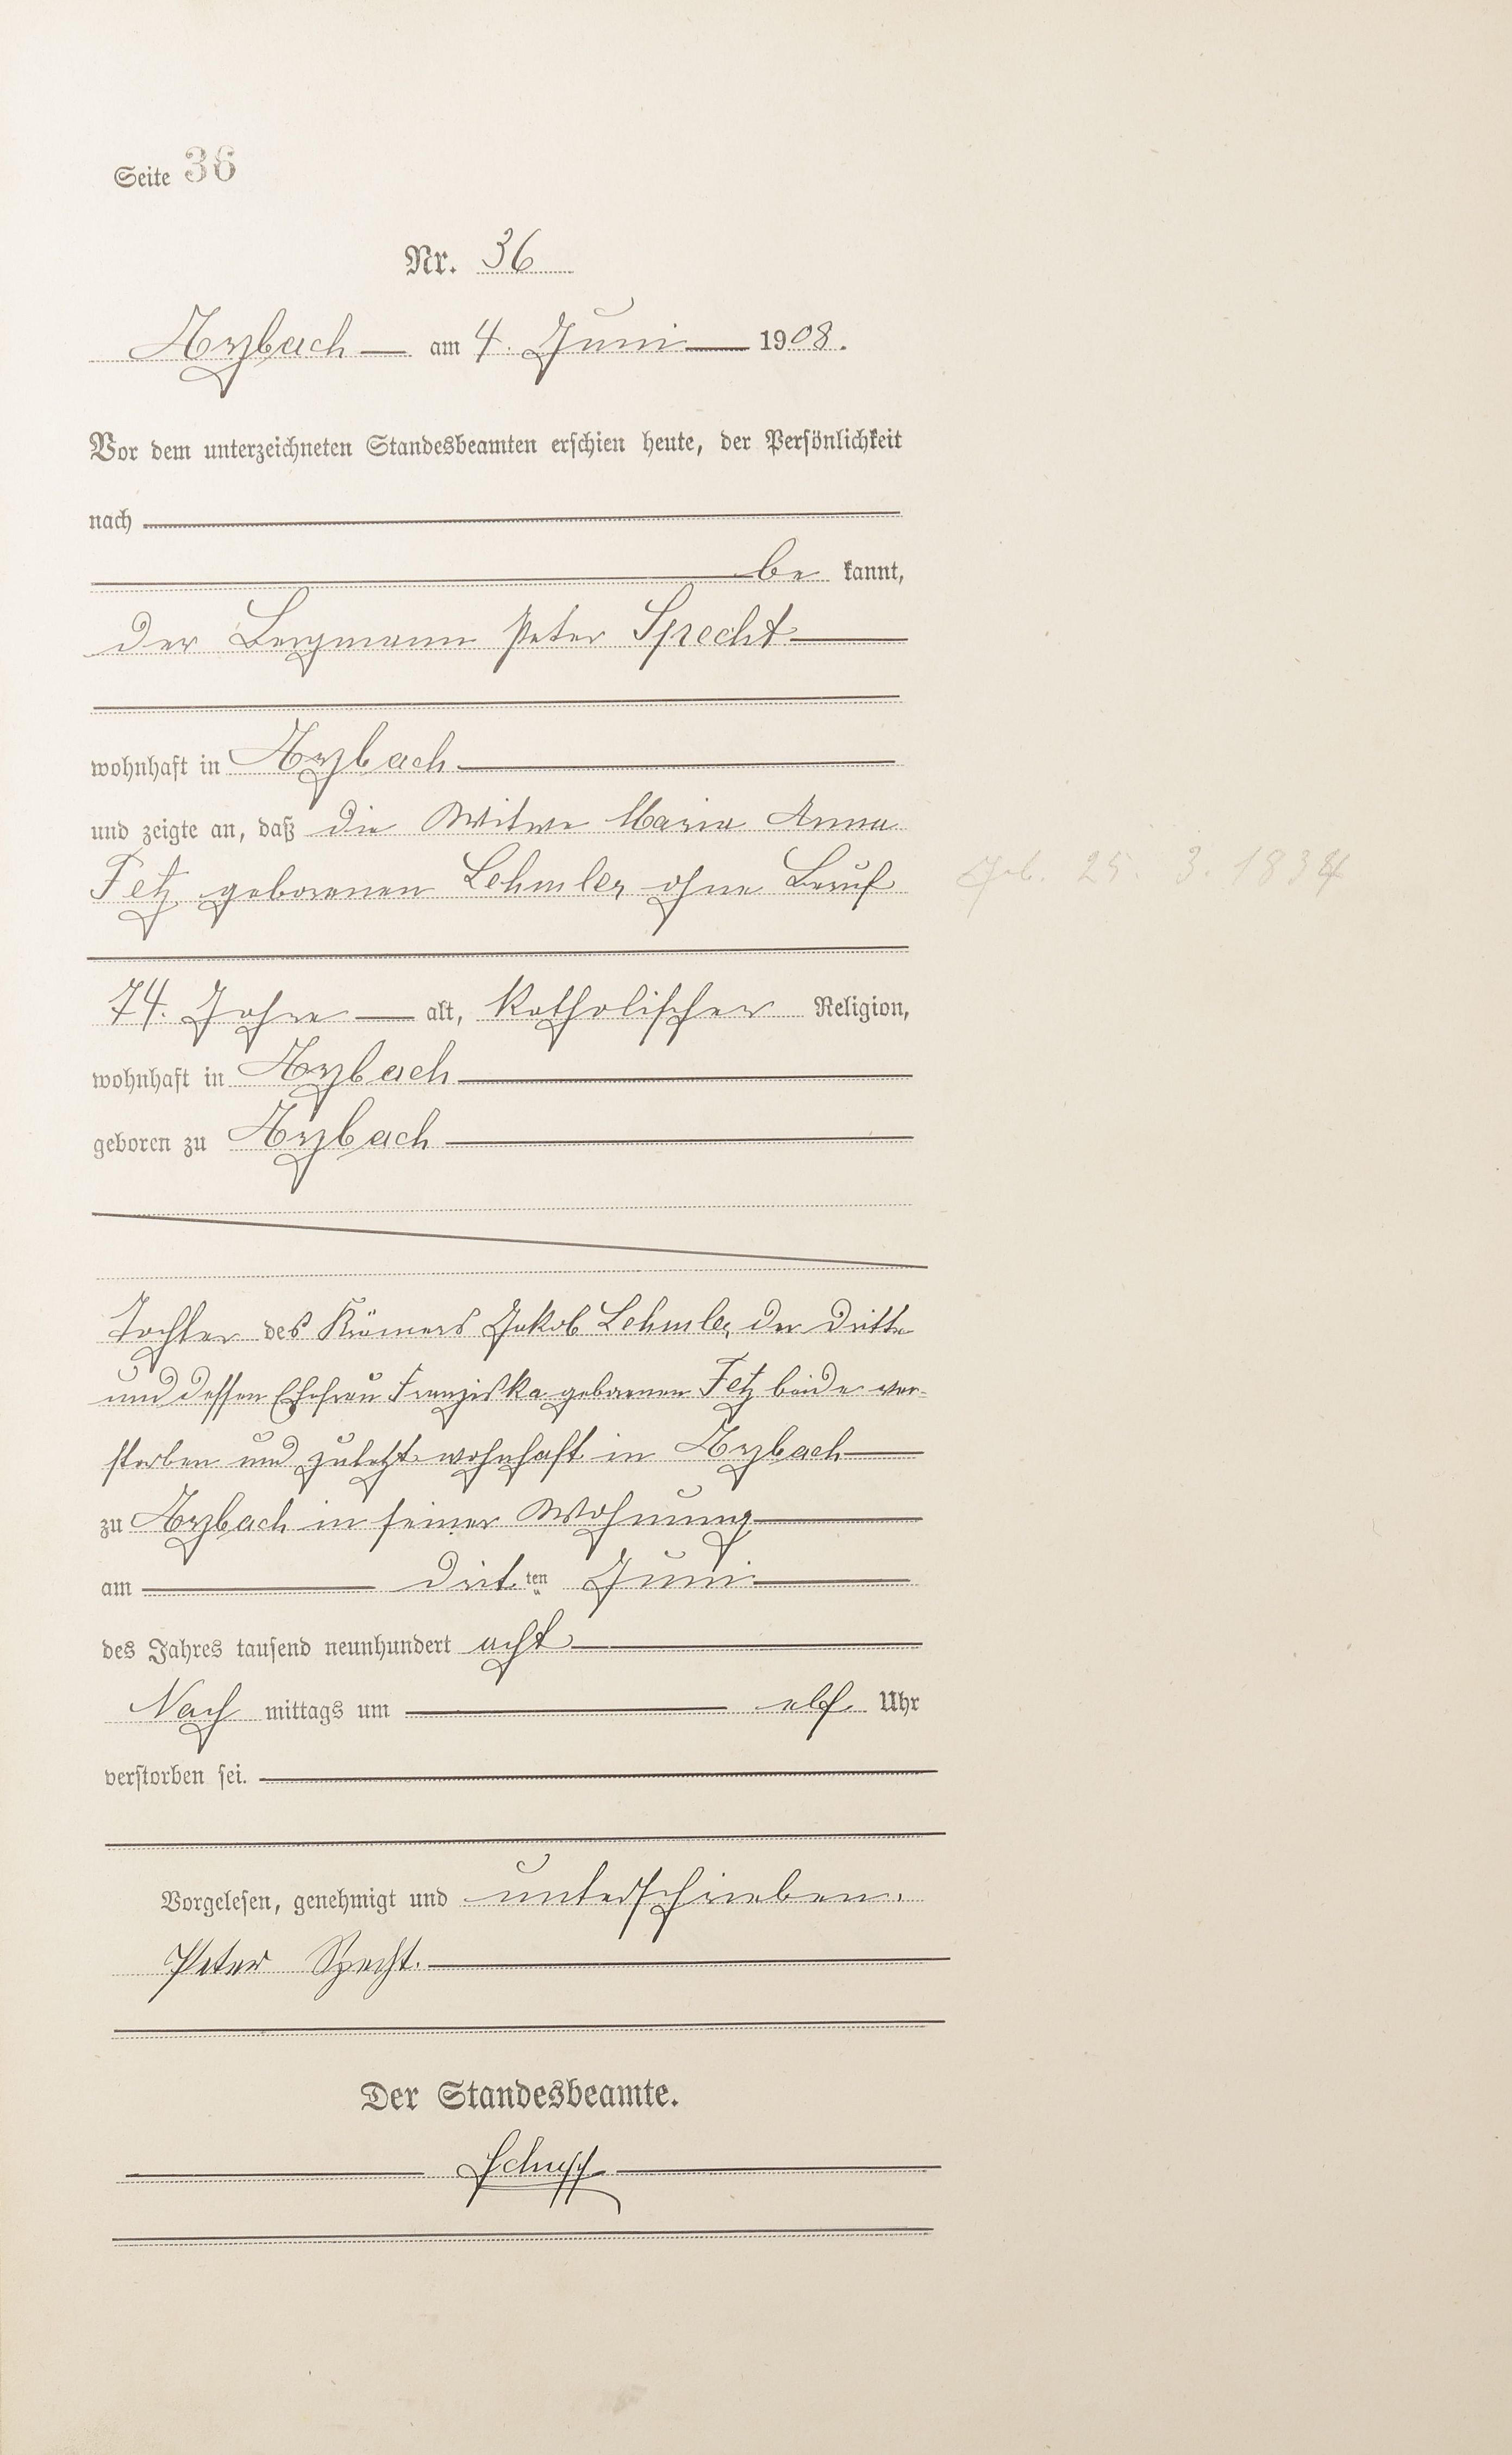 Seite 36
Nr. 36
Arzbach am 4. Juni 1908.
Vor dem unterzeichneten Standesbeamten erschien heute, der Persönlichkeit
nach
be kannt,
der Bergmann Peter Specht
wohnhaft in Arzbach
und zeigte an, daß die Witwe Maria Anna
Fetz geborenen Lehmler ohne Beruf
Geb. 25. 3. 1834
74. Jahre alt, katholischer Religion,
wohnhaft in Arzbach
geboren zu Arzbach
Tochter des Krämers Jakob Lehmler der dritte
und dessen Ehefrau Franziska geborenen Fetz beide ver-
storben und zuletzt wohnhaft in Arzbach
zu Arzbach in seiner Wohnung
am drit ten Juni
des Jahres tausend neunhundert acht
Nach mittags um elf Uhr
verstorben sei.
Vorgelesen, genehmigt und unterschrieben.
Peter Specht.
Der Standesbeamte.
Schupp